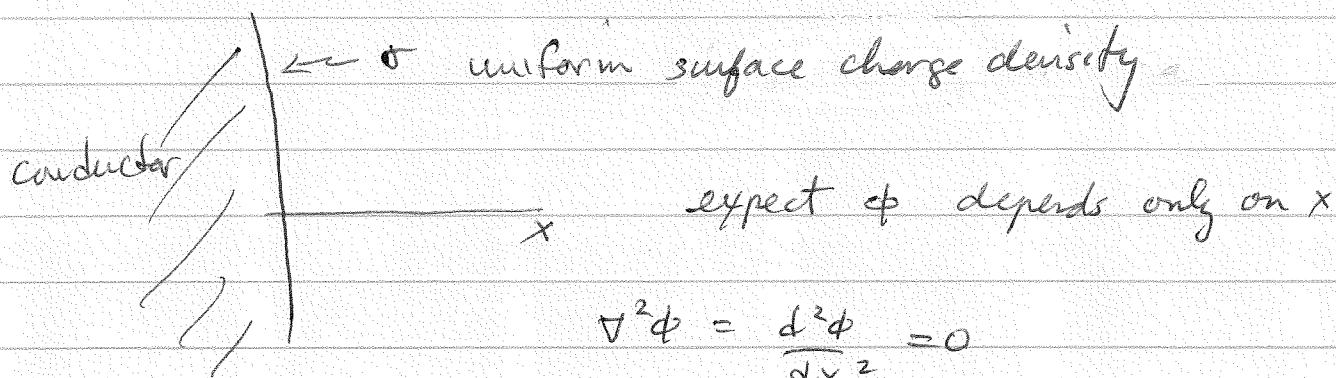 ← σ uniform surface charge density
conductor
x expect ϕ depends only on x
∇²ϕ = d²ϕ/dx² = 0